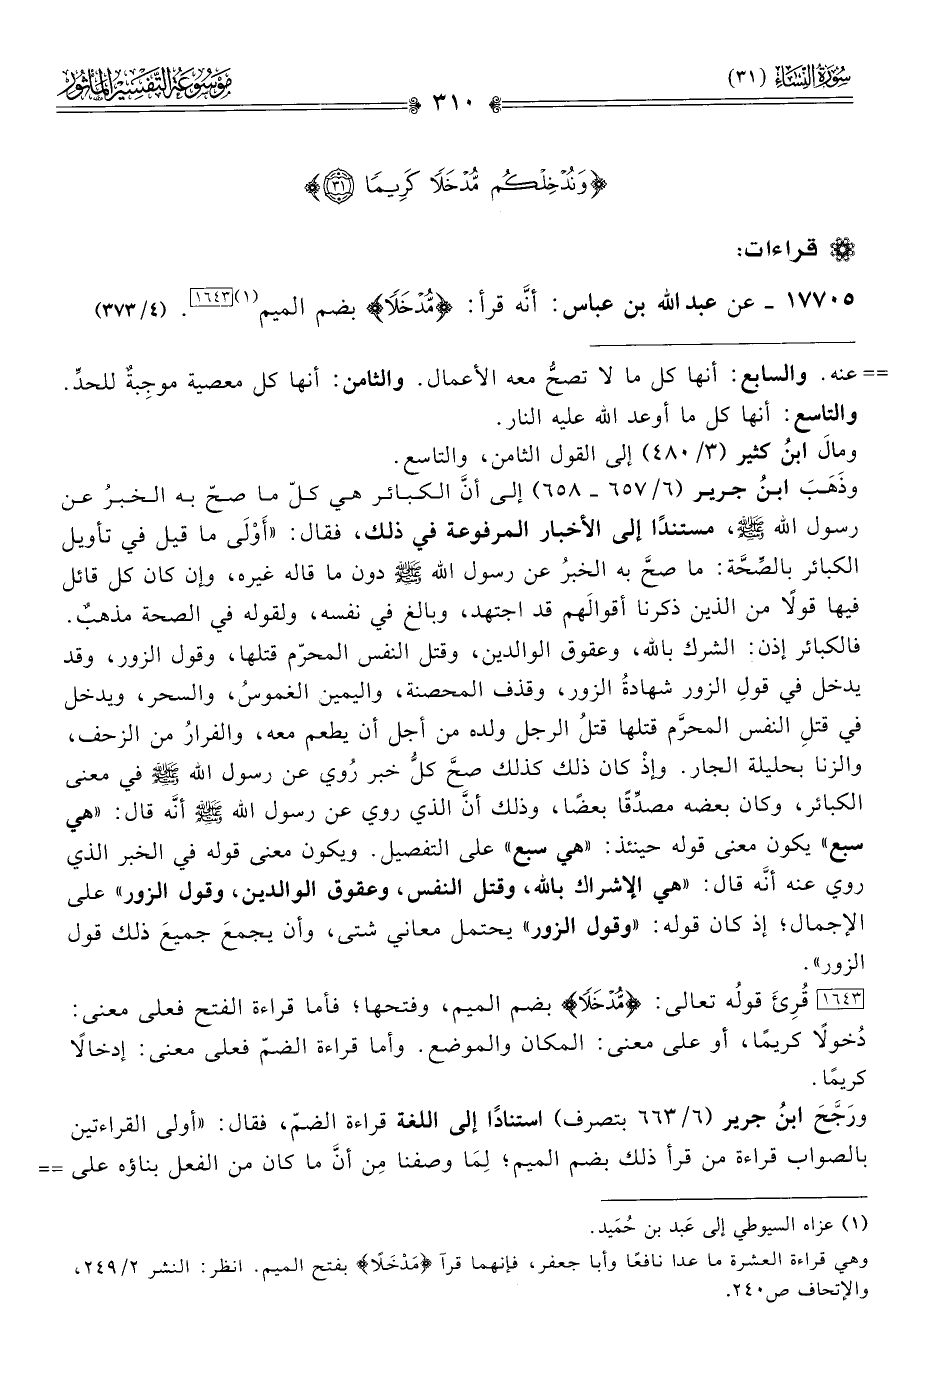 سُورَةُ النِّسَاءِ (٣١)
٣١٠
مَوْسُوعَةُ التَّفْسِيرِ المَأْثُورِ
﴿وَنُدْخِلْكُم مُّدْخَلًا كَرِيمًا ٣١﴾
قراءات:
١٧٧٠٥ ـ عن عبد الله بن عباس: أنَّه قرأ: ﴿مُّدْخَلًا﴾ بضم الميم(١)[١٦٤٣]. (٤/ ٣٧٣)
== عنه. والسابع: أنها كل ما لا تصحُّ معه الأعمال. والثامن: أنها كل معصية موجِبةٌ للحدِّ.
والتاسع: أنها كل ما أوعد الله عليه النار.
ومالَ ابنُ كثير (٣/ ٤٨٠) إلى القول الثامن، والتاسع.
وذَهَبَ ابنُ جرير (٦/ ٦٥٧ ـ ٦٥٨) إلى أنَّ الكبائر هي كلّ ما صحّ به الخبرُ عن
رسول الله ﷺ، مستندًا إلى الأخبار المرفوعة في ذلك، فقال: «أَوْلَى ما قيل في تأويل
الكبائر بالصِّحَّة: ما صحَّ به الخبرُ عن رسول الله ﷺ دون ما قاله غيره، وإن كان كل قائل
فيها قولًا من الذين ذكرنا أقوالَهم قد اجتهد، وبالغ في نفسه، ولقوله في الصحة مذهبٌ.
فالكبائر إذن: الشرك بالله، وعقوق الوالدين، وقتل النفس المحرّم قتلها، وقول الزور، وقد
يدخل في قولِ الزور شهادةُ الزور، وقذف المحصنة، واليمين الغموسُ، والسحر، ويدخل
في قتلِ النفس المحرَّم قتلها قتلُ الرجل ولده من أجل أن يطعم معه، والفرارُ من الزحف،
والزنا بحليلة الجار. وإذْ كان ذلك كذلك صحَّ كلُّ خبر رُوي عن رسول الله ﷺ في معنى
الكبائر، وكان بعضه مصدِّقًا بعضًا، وذلك أنَّ الذي روي عن رسول الله ﷺ أنَّه قال: «هي
سبع» يكون معنى قوله حينئذ: «هي سبع» على التفصيل. ويكون معنى قوله في الخبر الذي
روي عنه أنَّه قال: «هي الإشراك بالله، وقتل النفس، وعقوق الوالدين، وقول الزور» على
الإجمال؛ إذ كان قوله: «وقول الزور» يحتمل معاني شتى، وأن يجمعَ جميعَ ذلك قول
الزور».
[١٦٤٣] قُرِئَ قولُه تعالى: ﴿مُّدْخَلًا﴾ بضم الميم، وفتحها؛ فأما قراءة الفتح فعلى معنى:
دُخولًا كريمًا، أو على معنى: المكان والموضع. وأما قراءة الضمّ فعلى معنى: إدخالًا
كريمًا.
ورَجَّحَ ابنُ جرير (٦/ ٦٦٣ بتصرف) استنادًا إلى اللغة قراءة الضمّ، فقال: «أولى القراءتين
بالصواب قراءة من قرأ ذلك بضم الميم؛ لِمَا وصفنا مِن أنَّ ما كان من الفعل بناؤه على ==
(١) عزاه السيوطي إلى عَبد بن حُمَيد.
وهي قراءة العشرة ما عدا نافعًا وأبا جعفر، فإنهما قرآ ﴿مَدْخَلًا﴾ بفتح الميم. انظر: النشر ٢/ ٢٤٩،
والإتحاف ص٢٤٠.